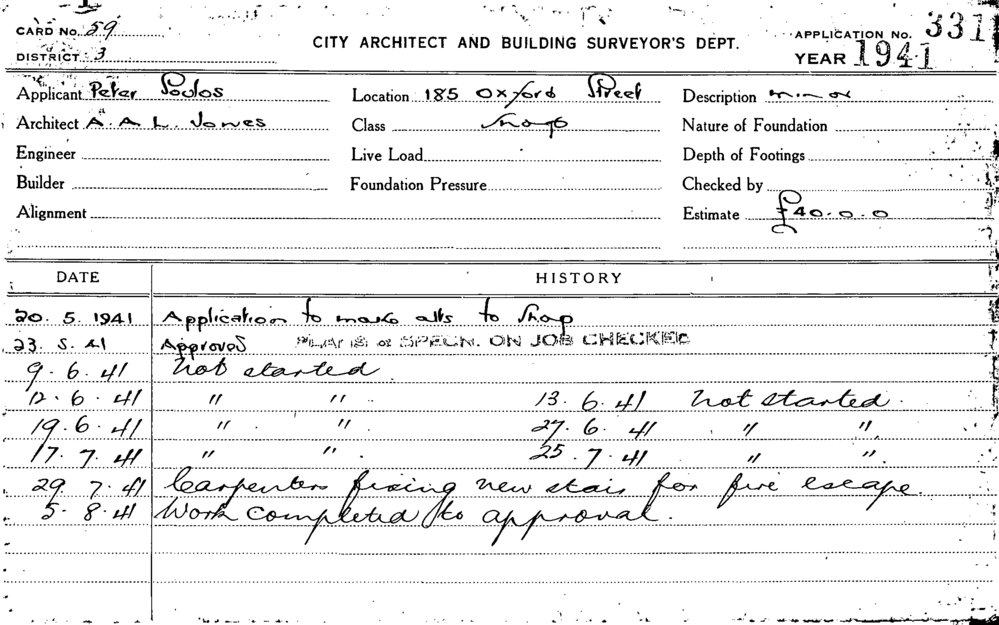 CARD No. 59
DISTRICT 3
CITY ARCHITECT AND BUILDING SURVEYOR'S DEPT.
APPLICATION No. 331
YEAR 1941
Applicant Peter Poulos Location 185 Oxford Street Description minor
Architect A. A. L. Jones Class Shops Nature of Foundation
Engineer Live Load Depth of Footings
Builder Foundation Pressure Checked by
Alignment Estimate £40.0.0
DATE HISTORY
20. 5. 1941 Application to make alts to Shop
23. 5. 41 Approved PLANS & SPECN. ON JOB CHECKED
9. 6. 41 Not started.
12. 6. 41 " " . 13. 6. 41 Not started.
19. 6. 41 " . " . 27. 6. 41 " "
17. 7. 41 " " . 25. 7. 41 " "
29. 7. 41 Carpenters fixing new stair for fire escape.
5. 8. 41 Work completed to approval.